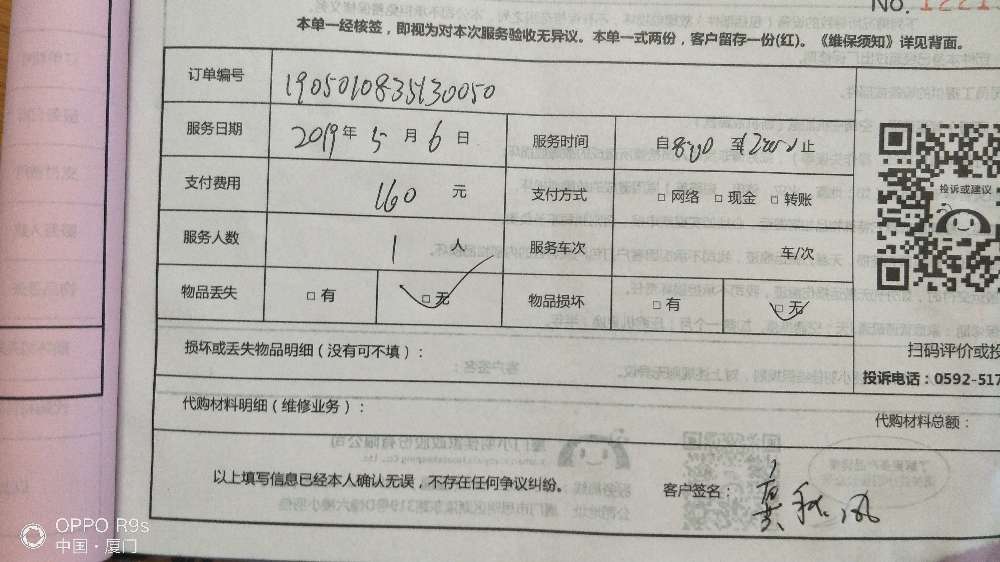 No. 1221
本单一经核签，即视为对本次服务验收无异议。本单一式两份，客户留存一份(红)。《维保须知》详见背面。
订单编号 1905010835130050
服务日期 2019年 5 月 6 日 服务时间 自 8:00 至 12:00 止
支付费用 160 元 支付方式 □ 网络 □ 现金 □ 转账
服务人数 1 人 服务车次 车/次
物品丢失 □ 有 □ 无 物品损坏 □ 有 □ 无
投诉或建议
扫码评价或投
投诉电话：0592-517
损坏或丢失物品明细（没有可不填）：
代购材料明细（维修业务）： 代购材料总额：
以上填写信息已经本人确认无误，不存在任何争议纠纷。 客户签名：
OPPO R9s
中国·厦门